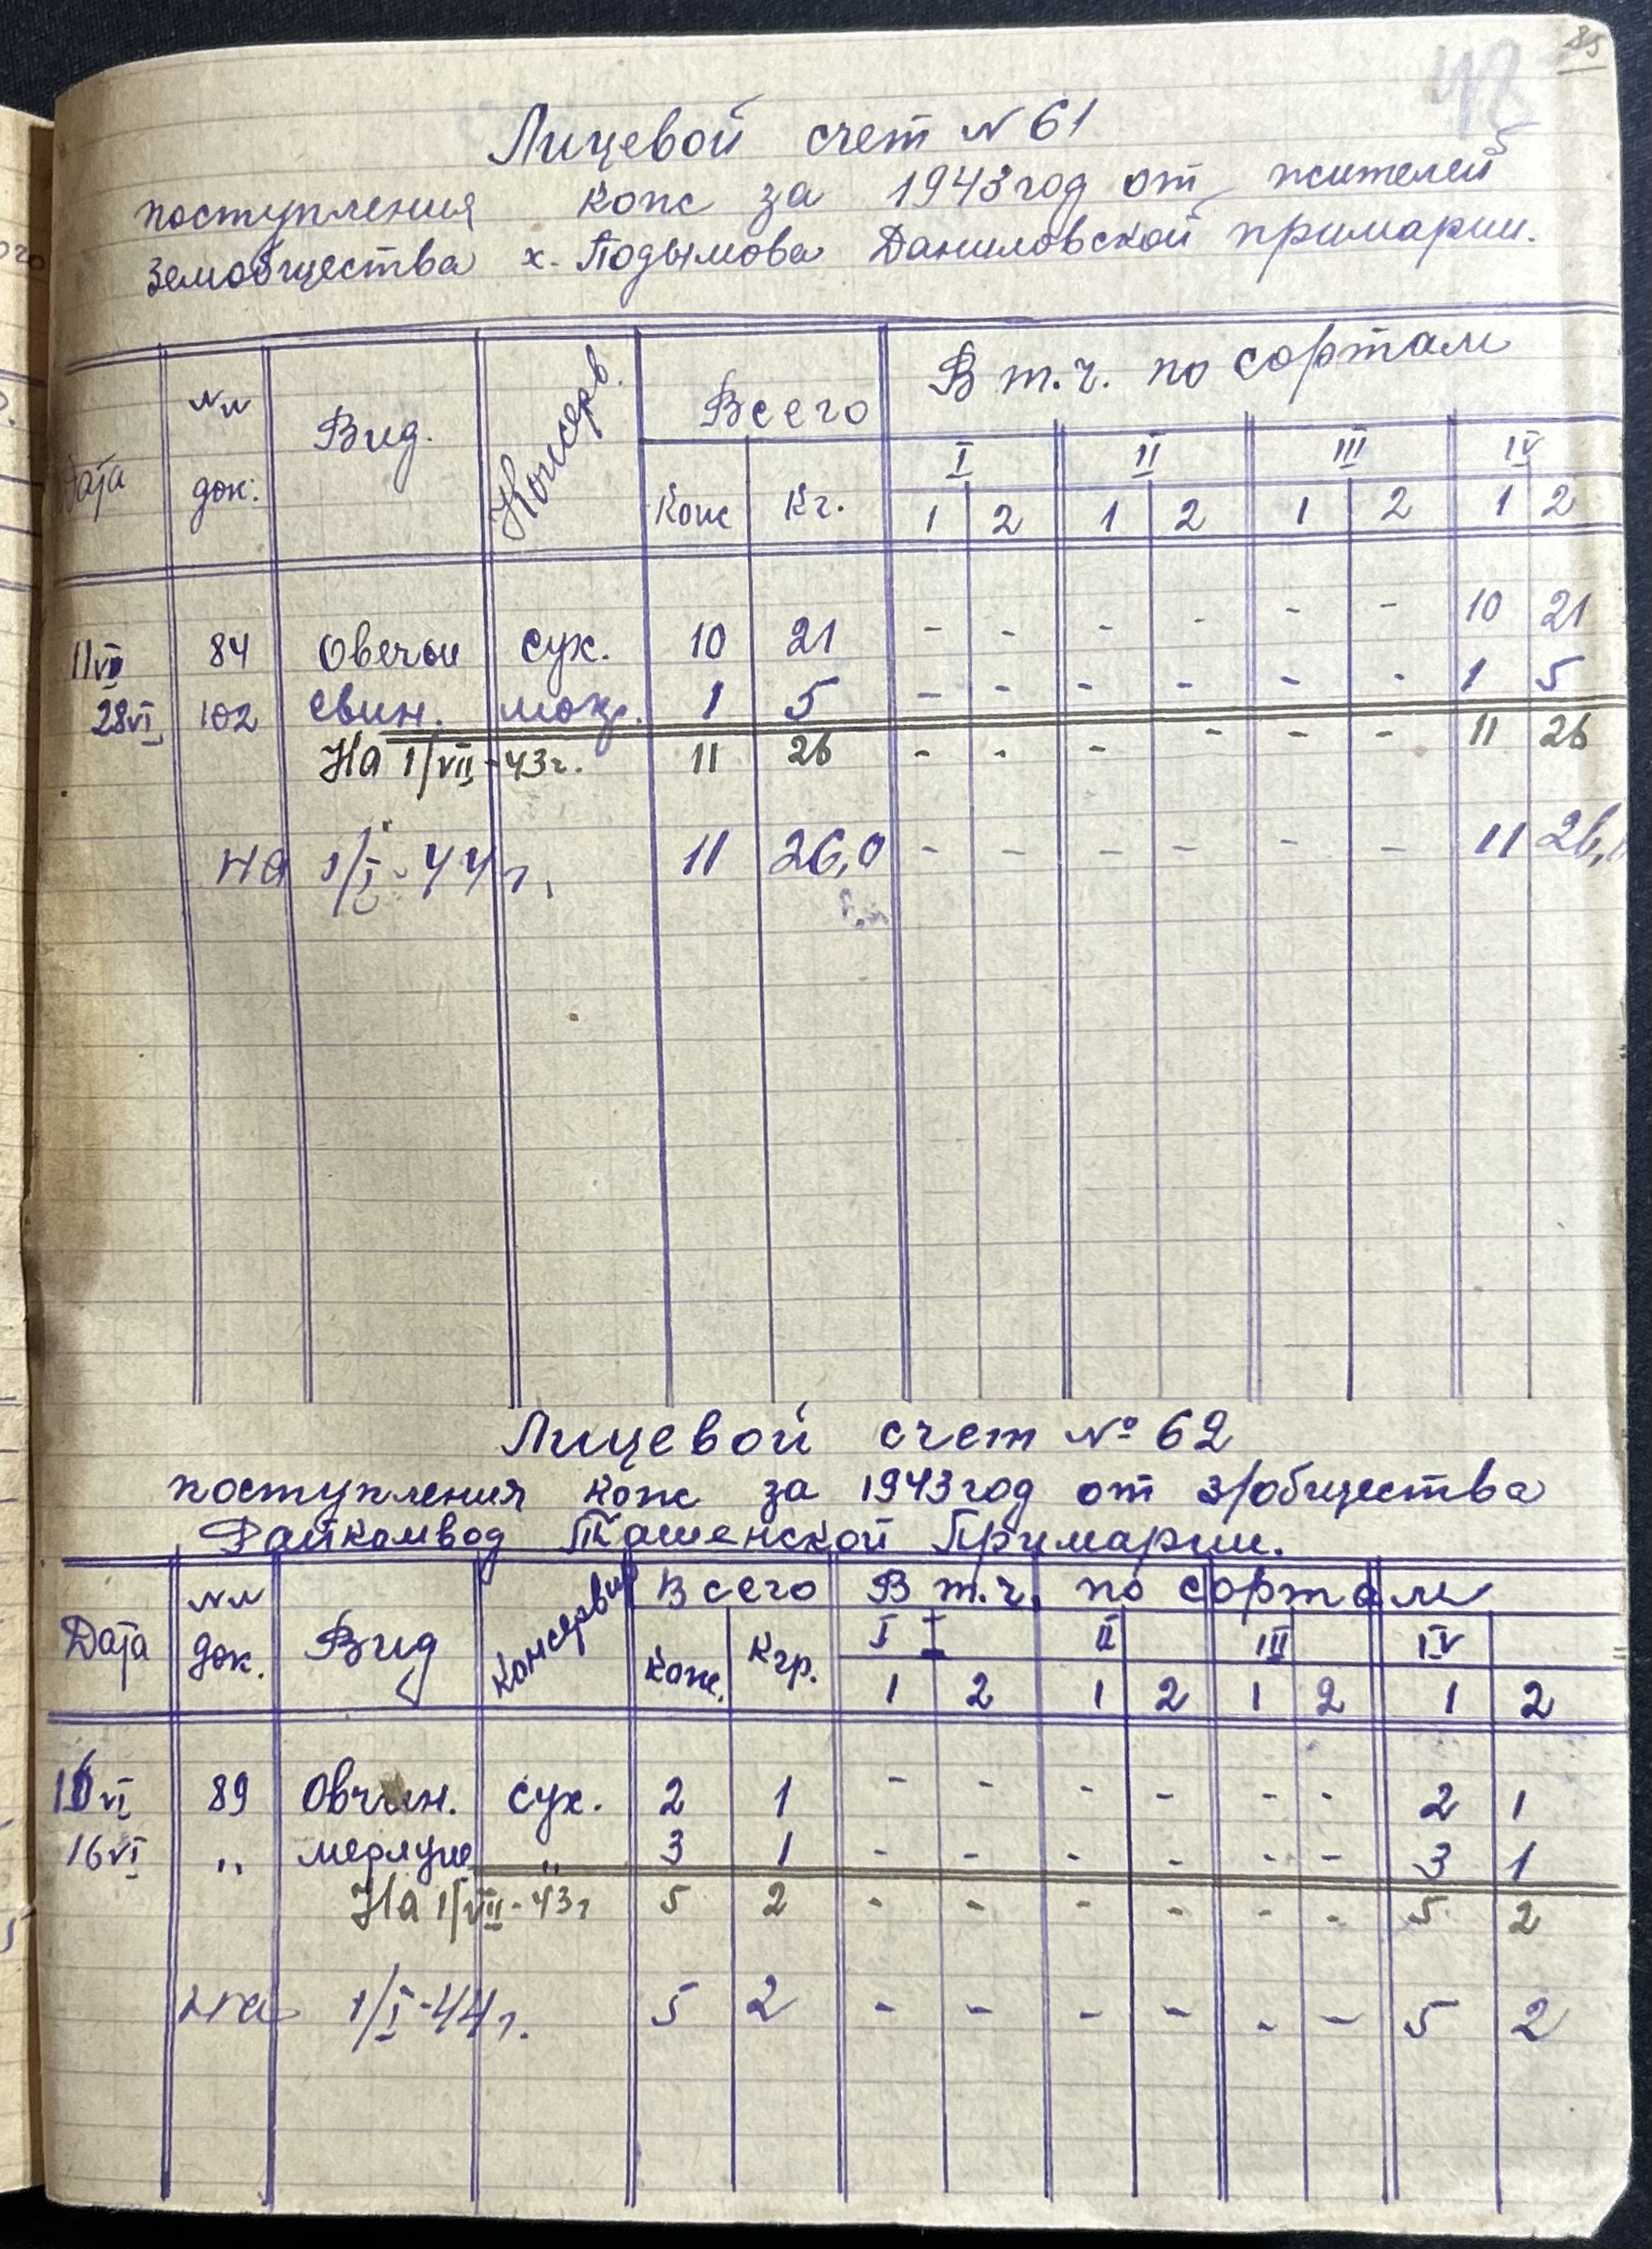 85
48
Лицевой счет № 61
поступления кож за 1943 год от жителей
земобщества х. Подымова Даниловской примарии.
Дата №№ док: Вид. Консерв. Всего В т.ч. по сортам
I II III IV
Кож Кг. 1 2 1 2 1 2 1 2
11 VI 84 Овечьи сух. 10 21 - - - - - - 10 21
28 VI 102 свин. мокр. 1 5 - - - - - - 1 5
На 1/VII-43г. 11 26 - - - - - - 11 26
На 1/I-44г. 11 26,0 - - - - - - 11 26,
Лицевой счет № 62
поступления кож за 1943 год от з/общества
Райкомвод Ташенской Примарии.
Дата №№ док. Вид Консервир Всего В т.ч. по сортам
I II III IV
кож. Кгр. 1 2 1 2 1 2 1 2
16 VI 89 Овчин. сух. 2 1 - - - - - - 2 1
16 VI " мерлуше " 3 1 - - - - - - 3 1
На 1/VII-43г 5 2 - - - - - - 5 2
На 1/I-44г. 5 2 - - - - - - 5 2